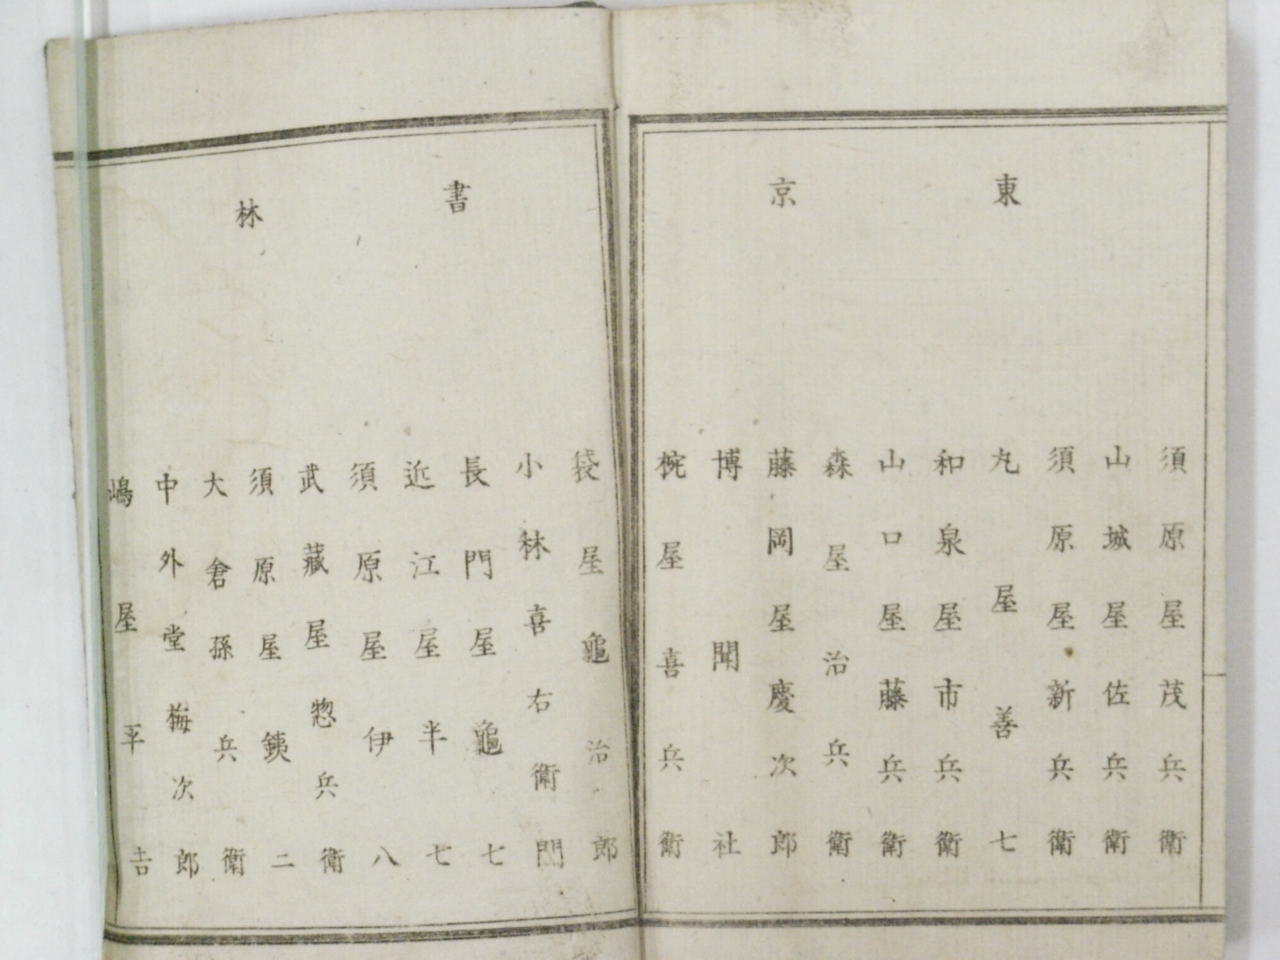 東京
須原屋茂兵衛
山城屋佐兵衛
須原屋新兵衛
丸屋善七
和泉屋市兵衛
山口屋藤兵衛
森屋治兵衛
藤岡屋慶次郎
博聞社
椀屋喜兵衛
書林
袋屋亀治郎
小林喜右衛門
長門屋亀七
近江屋半七
須原屋伊八
武藏屋惣兵衛
須原屋銕二
大倉孫兵衛
中外堂梅次郎
嶋屋平吉